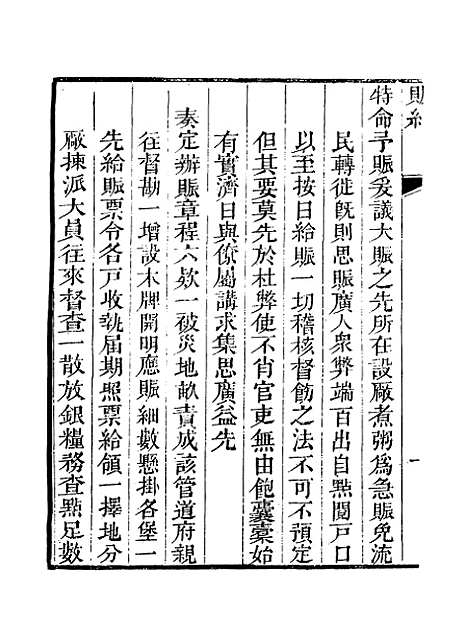 賑紀
一
特命予賑爰議大賑之先所在設厰煮粥爲急賑免流
民轉徙旣則思賑廣人衆弊端百出自點閱戸口
以至按日給賑一切稽核督飭之法不可不預定
但其要莫先於杜弊使不肖官吏無由飽囊橐始
有實濟日與僚屬講求集思廣益先
奏定辦賑章程六欵一被災地畝責成該管道府親
往督勘一增設木牌開明應賑細數懸掛各堡一
先給賑票令各戸收執屆期照票給領一擇地分
厰揀派大員往來督查一散放銀糧務查㸃足數